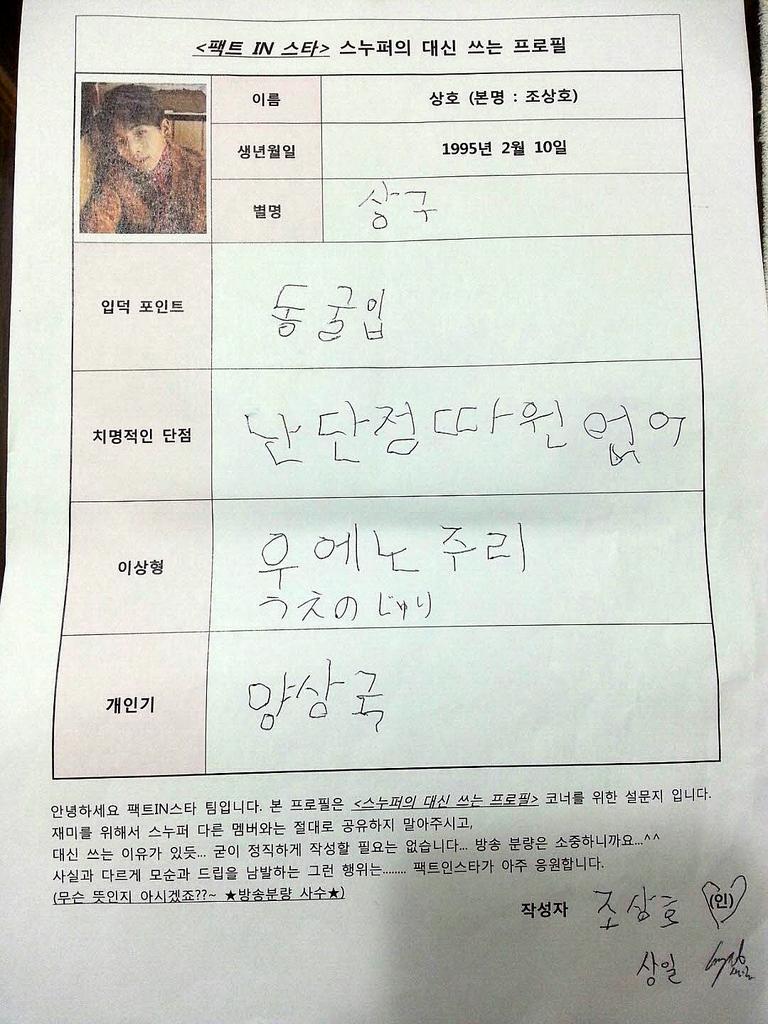 <팩트 IN 스타> 스누퍼의 대신 쓰는 프로필
이름
상호 (본명 : 조상호)
생년월일
1995년 2월 10일
별명
상구
입덕 포인트
동굴입
치명적인 단점
난 단점 따윈 없어
이상형
우에노 주리
うえの じゅり
개인기
양상국
안녕하세요 팩트IN스타 팀입니다. 본 프로필은 <스누퍼의 대신 쓰는 프로필> 코너를 위한 설문지 입니다.
재미를 위해서 스누퍼 다른 멤버와는 절대로 공유하지 말아주시고,
대신 쓰는 이유가 있듯... 굳이 정직하게 작성할 필요는 없습니다... 방송 분량은 소중하니까요...^^
사실과 다르게 모순과 드립을 남발하는 그런 행위는........ 팩트인스타가 아주 응원합니다.
(무슨 뜻인지 아시겠죠??~ ★방송분량 사수★)
작성자 조상호 (인)
상일